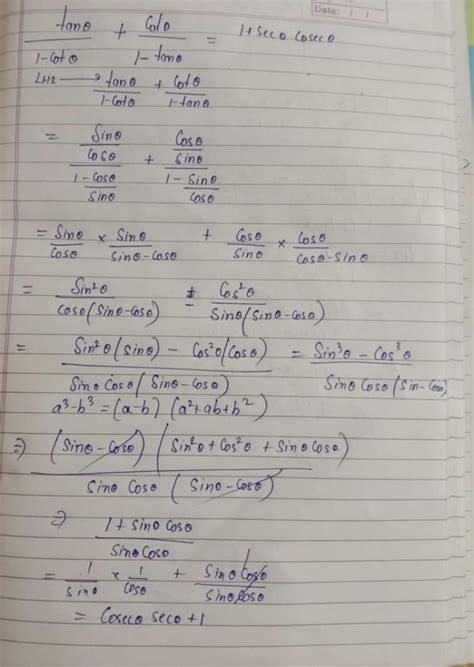 Date: / /
tanθ/(1-cotθ) + Cotθ/(1-tanθ) = 1+secθ cosecθ
LHS → tanθ/(1-Cotθ) + Cotθ/(1-tanθ)
= (Sinθ/Cosθ)/(1-Cosθ/Sinθ) + (Cosθ/Sinθ)/(1-Sinθ/Cosθ)
= Sinθ/Cosθ × Sinθ/(Sinθ-Cosθ) + Cosθ/Sinθ × Cosθ/(Cosθ-Sinθ)
= Sin²θ/(Cosθ(Sinθ-Cosθ)) ± Cos²θ/(Sinθ(Sinθ-Cosθ))
= (Sin²θ(Sinθ) - Cos²θ(Cosθ))/(Sinθ Cosθ(Sinθ-Cosθ)) = (Sin³θ - Cos³θ)/(Sinθ Cosθ(Sin-Cosθ)
a³-b³ = (a-b) (a²+ab+b²)
⇒ (Sinθ-Cosθ) (Sin²θ+Cos²θ + Sinθ Cosθ)/(Sinθ Cosθ (Sinθ-Cosθ))
⇒ (1+Sinθ Cosθ)/(Sinθ Cosθ)
= 1/Sinθ × 1/Cosθ + Sinθ Cosθ/(Sinθ Cosθ)
= Cosecθ secθ +1